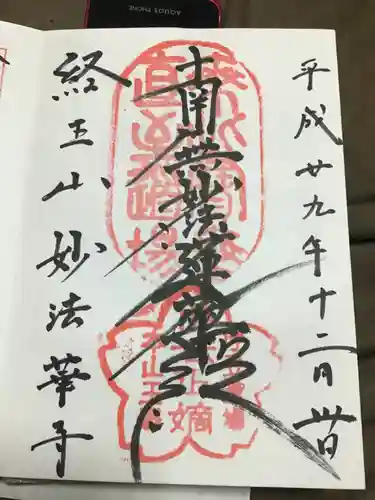 AQUOS PHONE
平成廿九年十二月卅日
南無妙法蓮華経
経王山妙法華寺